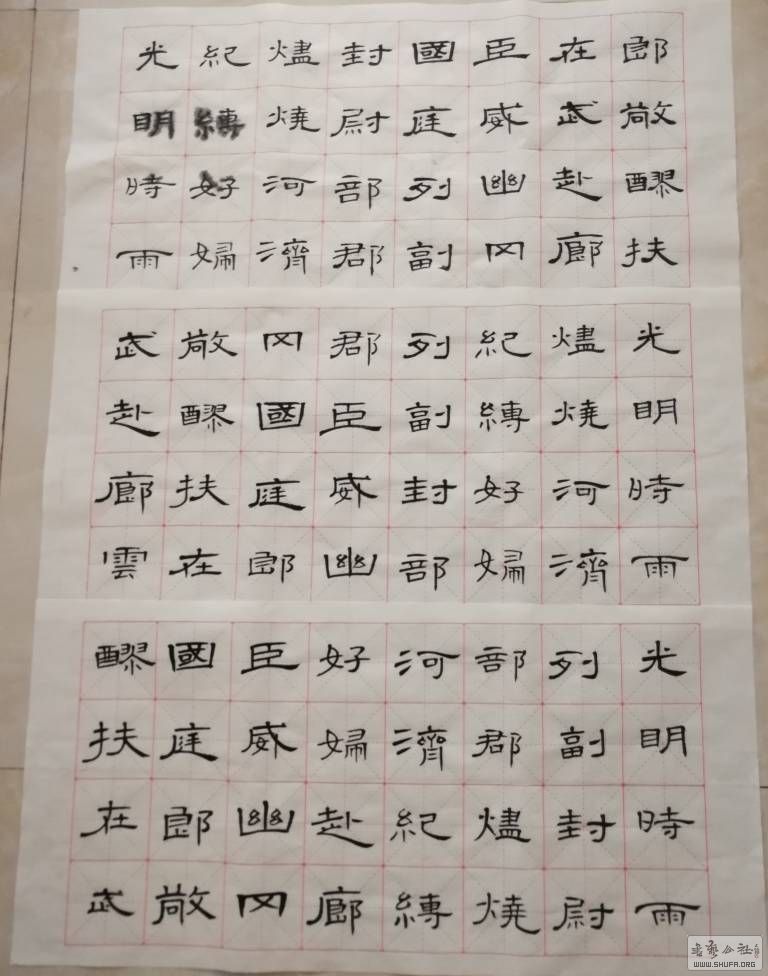 郎敞醪扶
在武赴廊
臣威幽四
國庭列副
封尉部郡
燼燒河濟
紀縛好婦
光明時雨
光明時雨
燼燒河濟
紀縛好婦
列副封部
郡臣威幽
四國庭郎
敞醪扶在
武赴廊雲
光明時雨
列副封尉
部郡燼燒
河濟紀縛
好婦赴廊
臣威幽四
國庭郎敞
醪扶在武
WWW.SHUFA.ORG